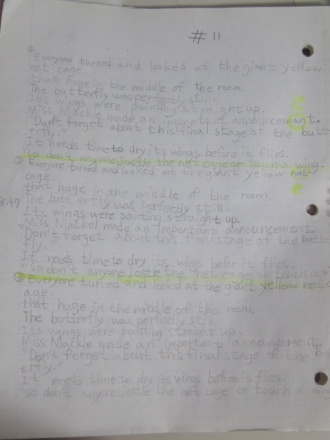 # 11
"Everyone turend and looked at the giant yellow
net cage.
that huge in the middle of the room.
The butterfly was perfectly still.
Its wings were pointing straight up.
Miss Mackle made an important announcement.
"Don't forget about this final stage of the butt
erfly."
It needs time to dry its wings before it flies.
so don't anyone jostle the net cage or touch a wing."
Everyone turned and looked at the giant yellow net
cage
that huge in the middle of the room.
The butterfly was perfectly still
Its wings were pointing straight up.
Miss Mackel made an important announcement.
"Don't forget about this final stage of the butter
fly."
It needs time to dry its wings befor it flies.
so don't anyone jostle the net cage or touch a
Everyone turned and looked at the giant yellow net c
age.
that huge in the middle of the room.
The butterfly was perfectly still
Its wings were pointing straight up.
Miss Mackle made an important announcement.
"Don't forget about this final stage of the butt
erfly."
It needs time to dry its wings before it flies.
"so don't anyone jostle the net cage or touch a